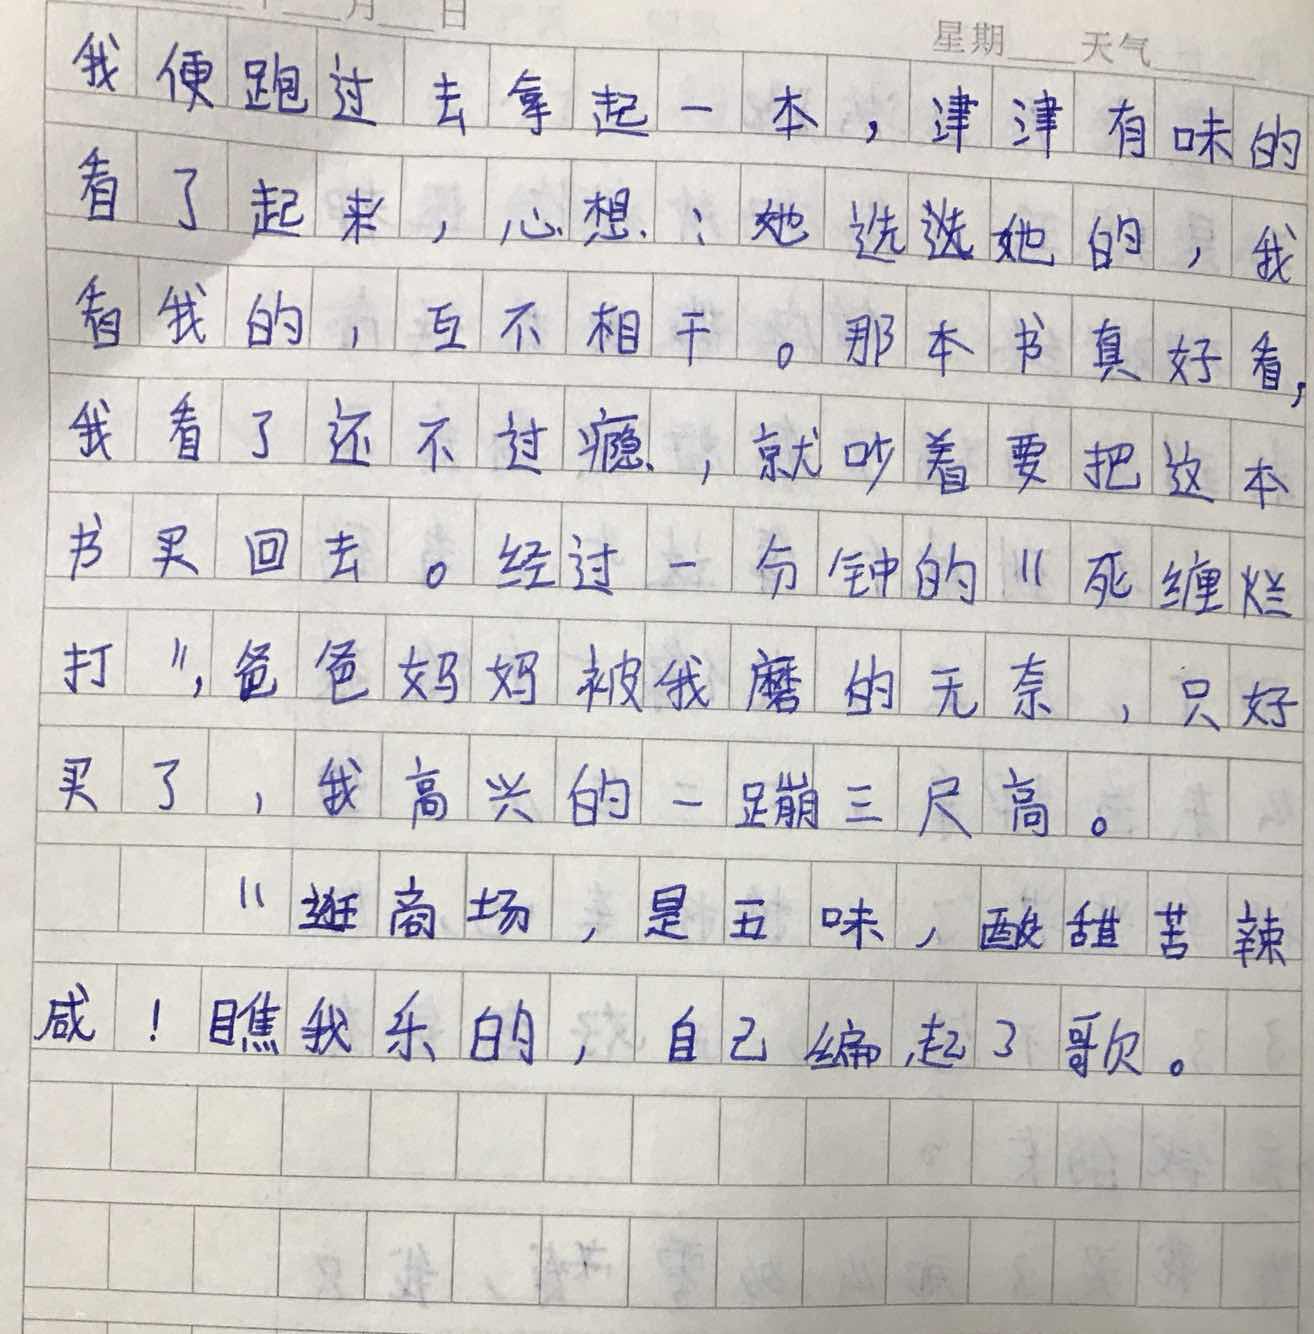 月 日 星期 天气
我便跑过去拿起一本，津津有味的
看了起来，心想：她选选她的，我
看我的，互不相干。那本书真好看，
我看了还不过瘾，就吵着要把这本
书买回去。经过一分钟的“死缠烂
打”，爸爸妈妈被我磨的无奈，只好
买了，我高兴的一蹦三尺高。
“逛商场，是五味，酸甜苦辣
咸！瞧我乐的，自己编起了歌。